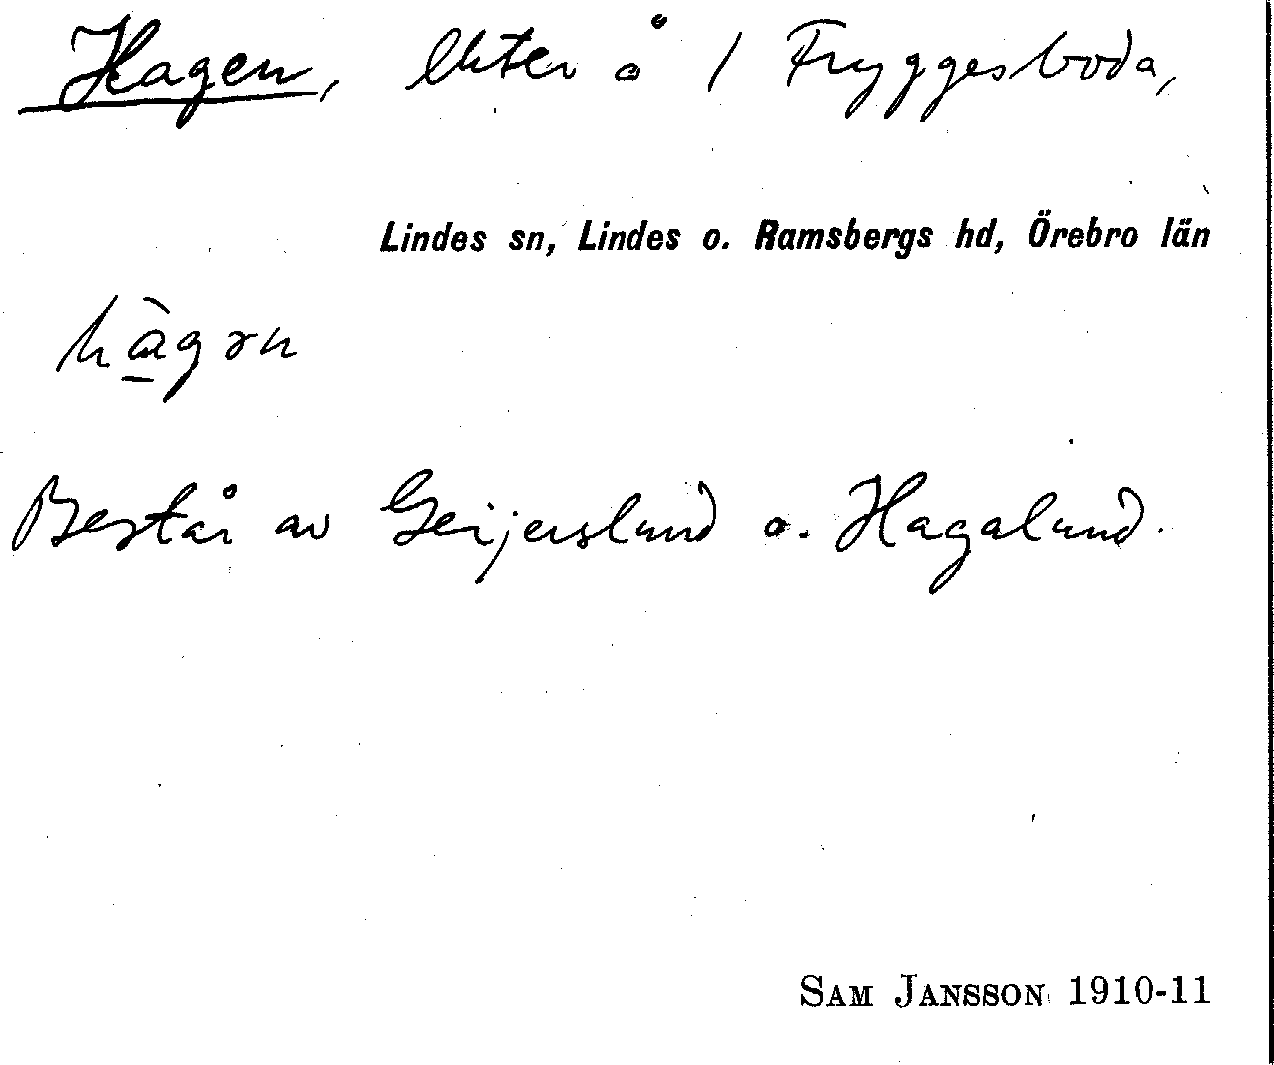 Hagen, å 1 Fryggesboda,
Lindes sn, Lindes o. Ramsbergs hd, Örebro län
Består av Geijerslund o. Hagalund.
SAM JANSSON 1910-11